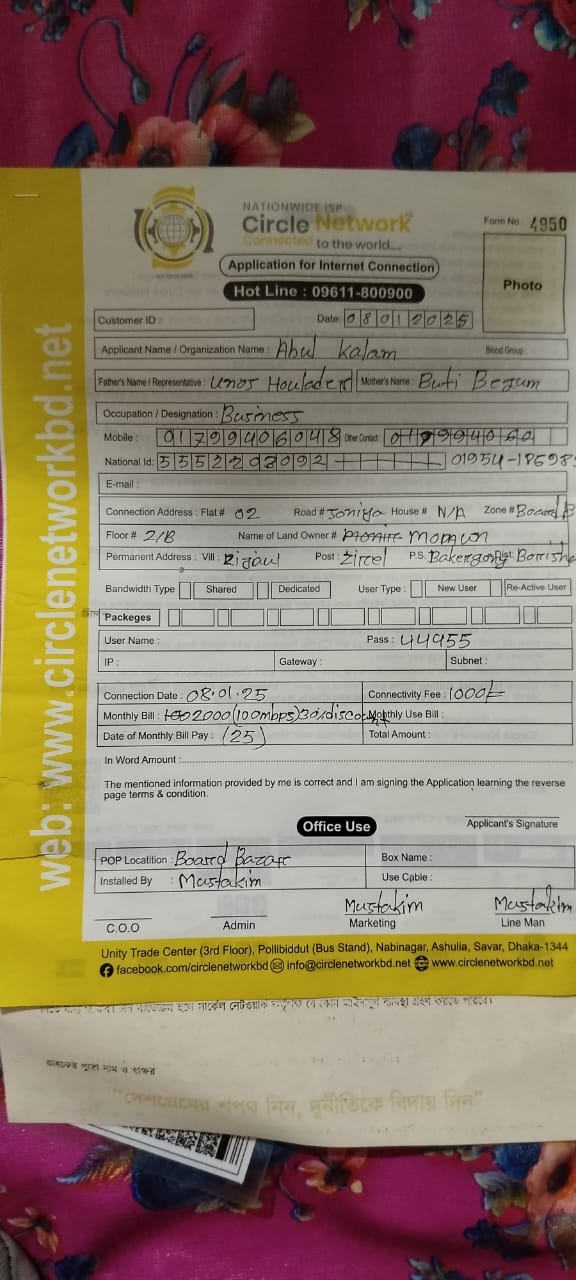 web: www.circlenetworkbd.net
NATIONWIDE ISP
Circle Network
Connected to the world....
Form No : 4950
Photo
Application for Internet Connection
Hot Line : 09611-800900
Customer ID :
Date: 08012025
Applicant Name / Organization Name : Abul Kalam Blood Group :
Father's Name / Representative : Mother's Name : Buti Begum
Occupation / Designation : Business
Mobile : 01799406048 Other Contact :
National Id: 01954-
E-mail :
Connection Address : Flat# 02 Road # Soniya House # N/A Zone # Board B
Floor # 2/B Name of Land Owner # Momun
Permanent Address : Vill : Post : P.S.
Bandwidth Type Shared Dedicated User Type : New User Re-Active User
Packeges
User Name : Pass : 44955
IP : Gateway : Subnet :
Connection Date : 08.01.25 Connectivity Fee : 1000/-
Monthly Bill : 2000(100mbps)30%discount Monthly Use Bill :
Date of Monthly Bill Pay : (25) Total Amount :
In Word Amount :
The mentioned information provided by me is correct and I am signing the Application learning the reverse
page terms & condition.
Office Use
Applicant's Signature
POP Locatition : Board Bazar Box Name :
Installed By : Mustakim Use Cable :
Mustakim Mustakim
C.O.O Admin Marketing Line Man
Unity Trade Center (3rd Floor), Pollibiddut (Bus Stand), Nabinagar, Ashulia, Savar, Dhaka-1344
facebook.com/circlenetworkbd info@circlenetworkbd.net www.circlenetworkbd.net
গ্রাহকের পুরো নাম ও স্বাক্ষর
"দেশপ্রেমের শপথ নিন, দুর্নীতিকে বিদায় দিন"